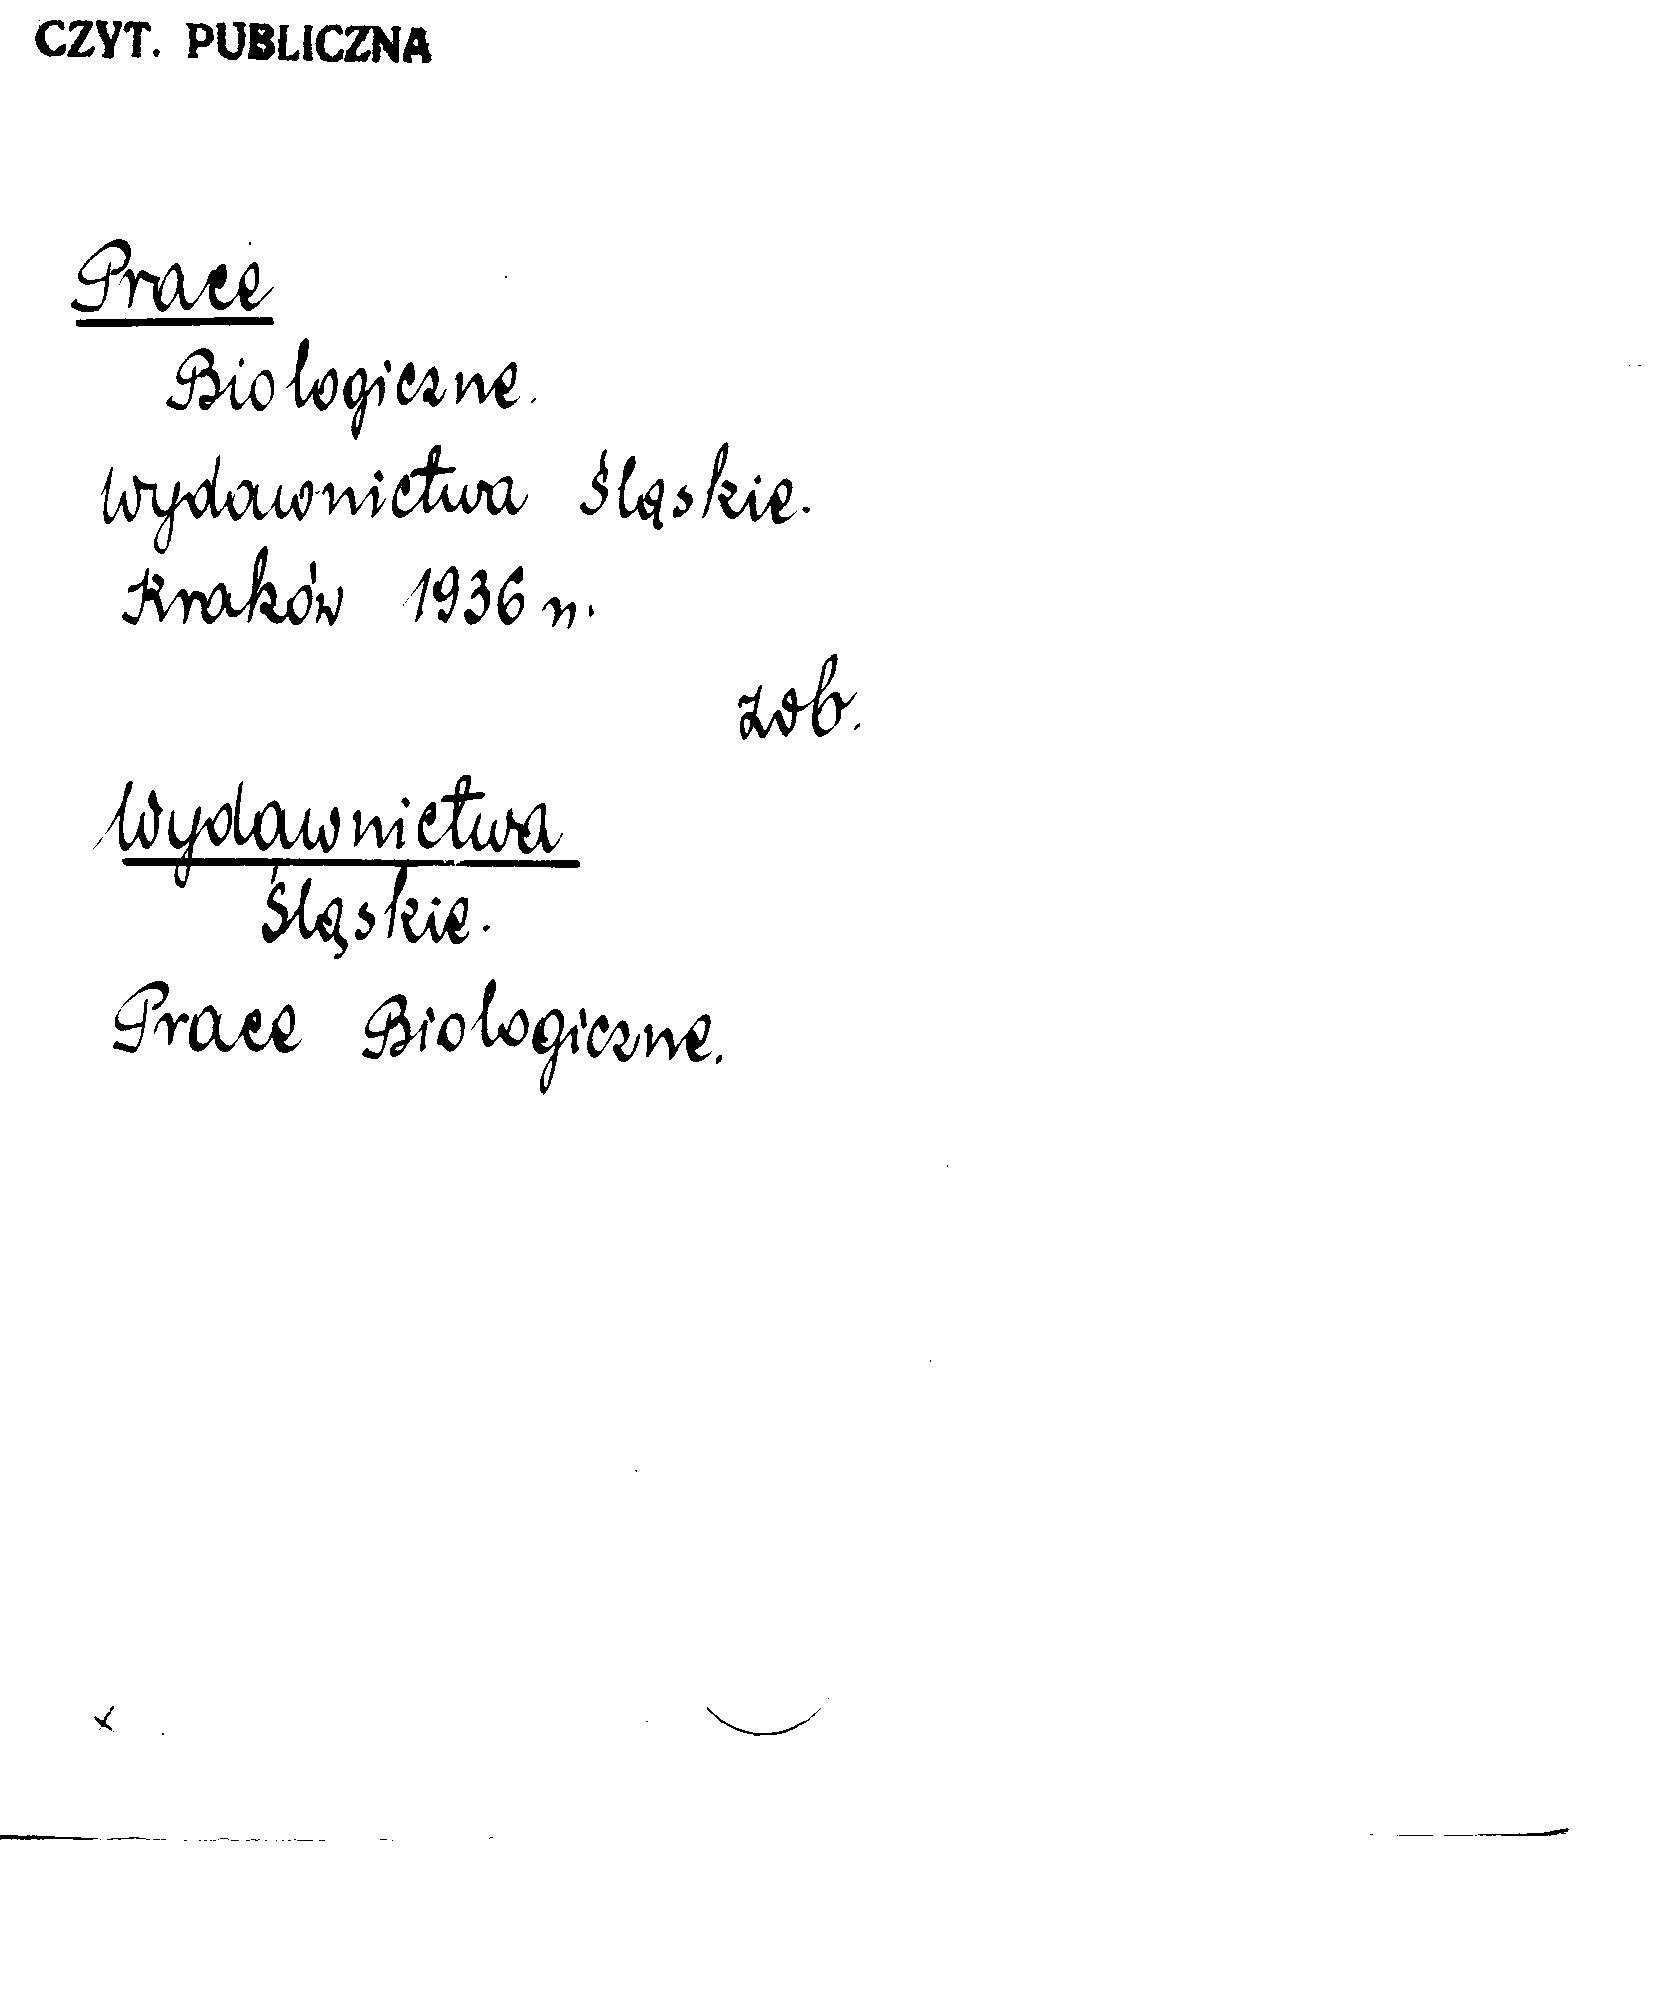 CZYT. PUBLICZNA
Prace
Biologiczne.
Wydawnictwa Śląskie.
Kraków 1936 r.
zob.
Wydawnictwa
Śląskie.
Prace Biologiczne.
x